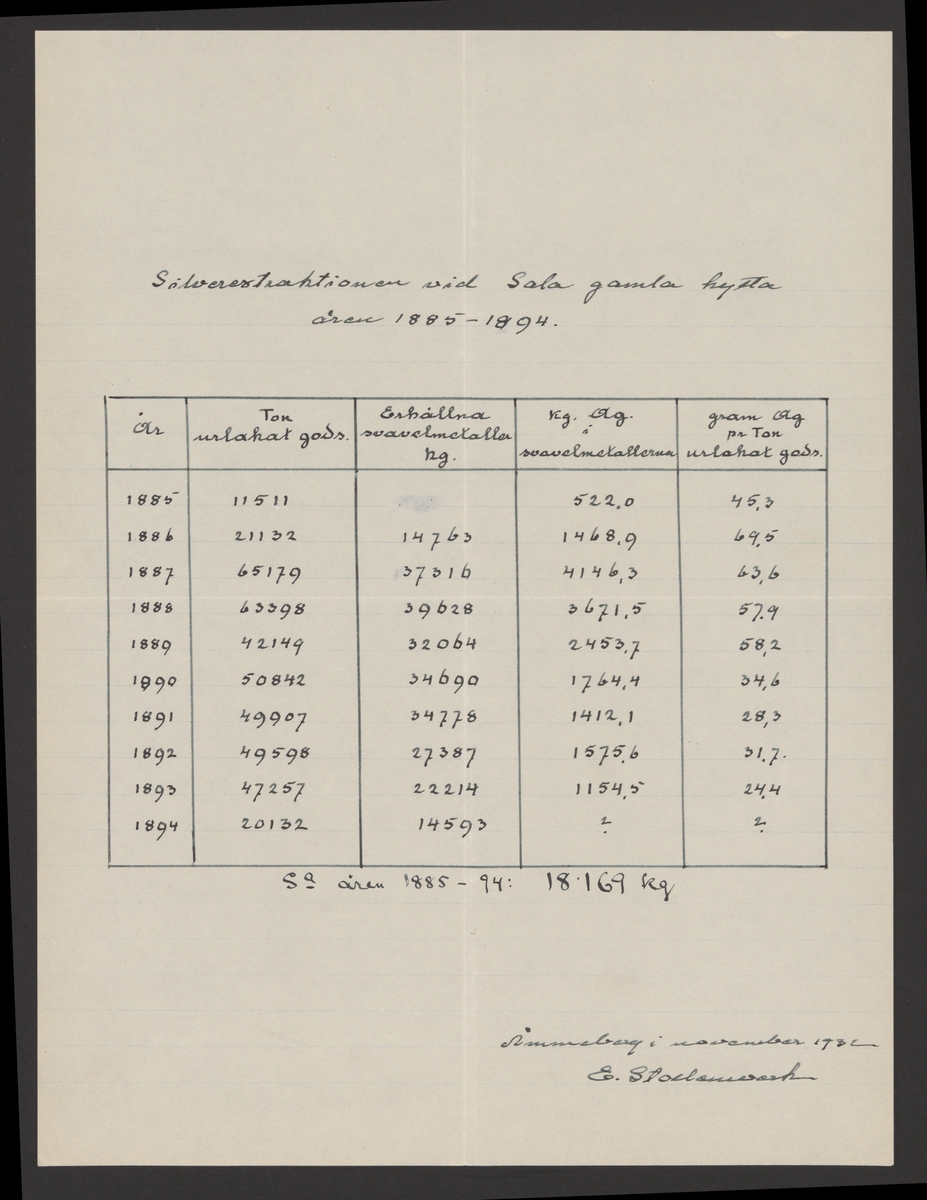 Silverextraktionen vid Sala gamla hytta
åren 1885-1894.
År | Ton urlakat gods. | Erhållna svavelmetaller kg. | kg. Ag. i svavelmetallerna | gram Ag pr Ton urlakat gods.
1885 | 11511 | | 522.0 | 45,3
1886 | 21132 | 14763 | 1468,9 | 69,5
1887 | 65179 | 37316 | 4146,3 | 63,6
1888 | 63398 | 39628 | 3671,5 | 57.9
1889 | 42149 | 32064 | 2453,7 | 58,2
1990 | 50842 | 34690 | 1764,4 | 34,6
1891 | 49907 | 34778 | 1412,1 | 28,3
1892 | 49598 | 27387 | 1575,6 | 31.7.
1893 | 47257 | 22214 | 1154,5 | 24,4
1894 | 20132 | 14593 | ? | ?
Sa åren 1885 - 94: 18·169 kg
Åmmeberg i november 1932
E.